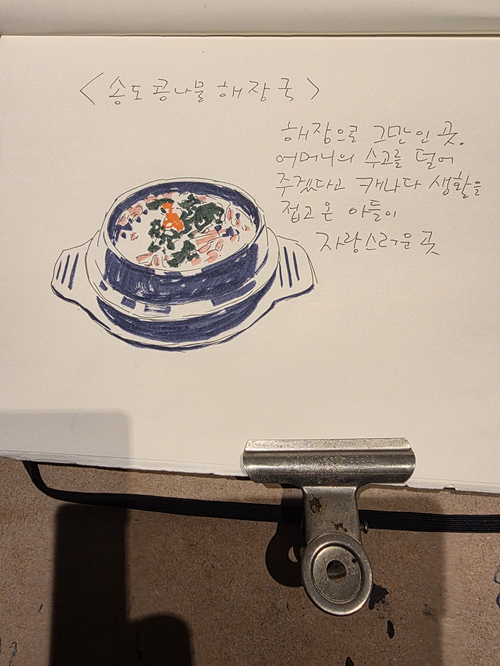 <송도콩나물해장국>
해장으로 그만인 곳.
어머니의 수고를 덜어
주겠다고 캐나다 생활을
접고 온 아들이
자랑스러운 곳